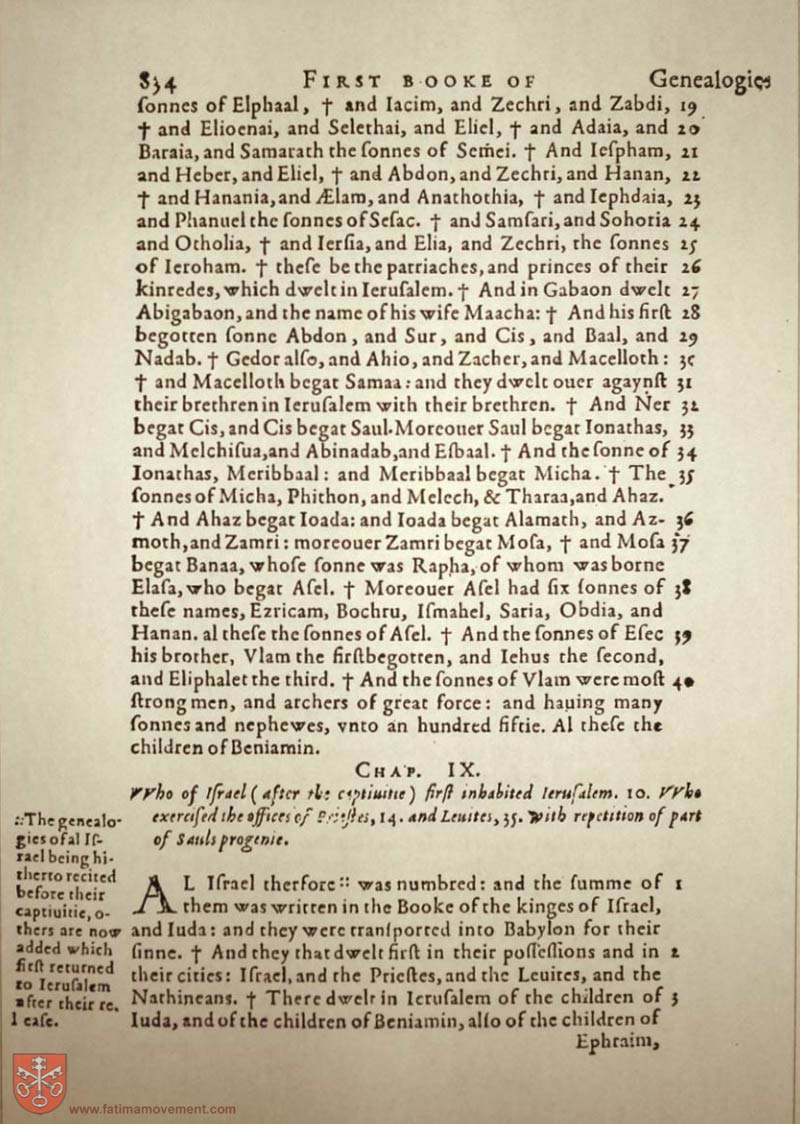 834 FIRST BOOKE OF Genealogies
ſonnes of Elphaal, † and Iacim, and Zechri, and Zabdi, 19
† and Elioenai, and Selethai, and Eliel, † and Adaia, and 20
Baraia, and Samarath the ſonnes of Semei. † And Ieſpham, 21
and Heber, and Eliel, † and Abdon, and Zechri, and Hanan, 22
† and Hanania, and Ælam, and Anathothia, † and Iephdaia, 23
and Phanuel the ſonnes of Seſac. † and Samſari, and Sohoria 24
and Otholia, † and Ierſia, and Elia, and Zechri, the ſonnes 25
of Ieroham. † theſe be the patriaches, and princes of their 26
kinredes, which dwelt in Ieruſalem. † And in Gabaon dwelt 27
Abigabaon, and the name of his wife Maacha: † And his firſt 28
begotten ſonne Abdon, and Sur, and Cis, and Baal, and 29
Nadab. † Gedor alſo, and Ahio, and Zacher, and Macelloth: 30
† and Macelloth begat Samaa: and they dwelt ouer agaynſt 31
their brethren in Ieruſalem with their brethren. † And Ner 32
begat Cis, and Cis begat Saul. Moreouer Saul begat Ionathas, 33
and Melchiſua, and Abinadab, and Eſbaal. † And the ſonne of 34
Ionathas, Meribbaal: and Meribbaal begat Micha. † The 35
ſonnes of Micha, Phithon, and Melech, & Tharaa, and Ahaz.
† And Ahaz begat Ioada: and Ioada begat Alamath, and Az- 36
moth, and Zamri: moreouer Zamri begat Moſa, † and Moſa 37
begat Banaa, whoſe ſonne was Rapha, of whom was borne
Elaſa, who begat Aſel. † Moreouer Aſel had ſix ſonnes of 38
theſe names, Ezricam, Bochru, Iſmahel, Saria, Obdia, and
Hanan. al theſe the ſonnes of Aſel. † And the ſonnes of Eſec 39
his brother, Vlam the firſtbegotten, and Iehus the ſecond,
and Eliphalet the third. † And the ſonnes of Vlam were moſt 40
ſtrong men, and archers of great force: and hauing many
ſonnes and nephewes, vnto an hundred fiftie. Al theſe the
children of Beniamin.
CHAP. IX.
VVho of Iſrael (after the captiuitie) firſt inhabited Ieruſalem. 10. VVho
exerciſed the offices of Prieſtes, 14. and Leuites, 35. With repetition of part
of Sauls progenie.
AL Iſrael therfore :: was numbred: and the ſumme of 1
them was written in the Booke of the kinges of Iſrael,
and Iuda: and they were tranſported into Babylon for their
ſinne. † And they that dwelt firſt in their poſſeſſions and in 2
their cities: Iſrael, and the Prieſtes, and the Leuites, and the
Nathineans. † There dwelt in Ieruſalem of the children of 3
Iuda, and of the children of Beniamin, alſo of the children of
Ephraim,
:: The genealo-
gies of al Iſ-
rael being hi-
therto recited
before their
captiuitie, o-
thers are now
added which
firſt returned
to Ieruſalem
after their re-
leaſe.
www.fatimamovement.com